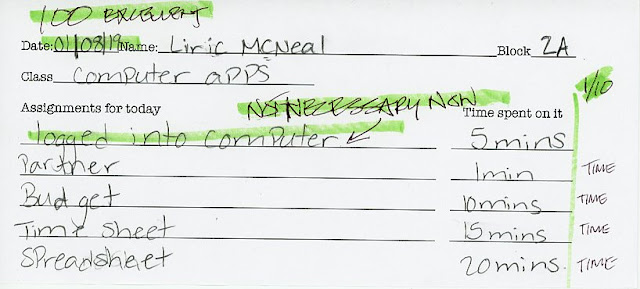 100 EXCELLENT
Date: 01/08/19 Name: Liric McNeal Block 2A
Class computer apps
Assignments for today NOT NECESSARY NOW Time spent on it 1/10
logged into computer 5 mins
Partner 1 min TIME
Budget 10 mins TIME
Time sheet 15 mins TIME
Spreadsheet 20 mins. TIME